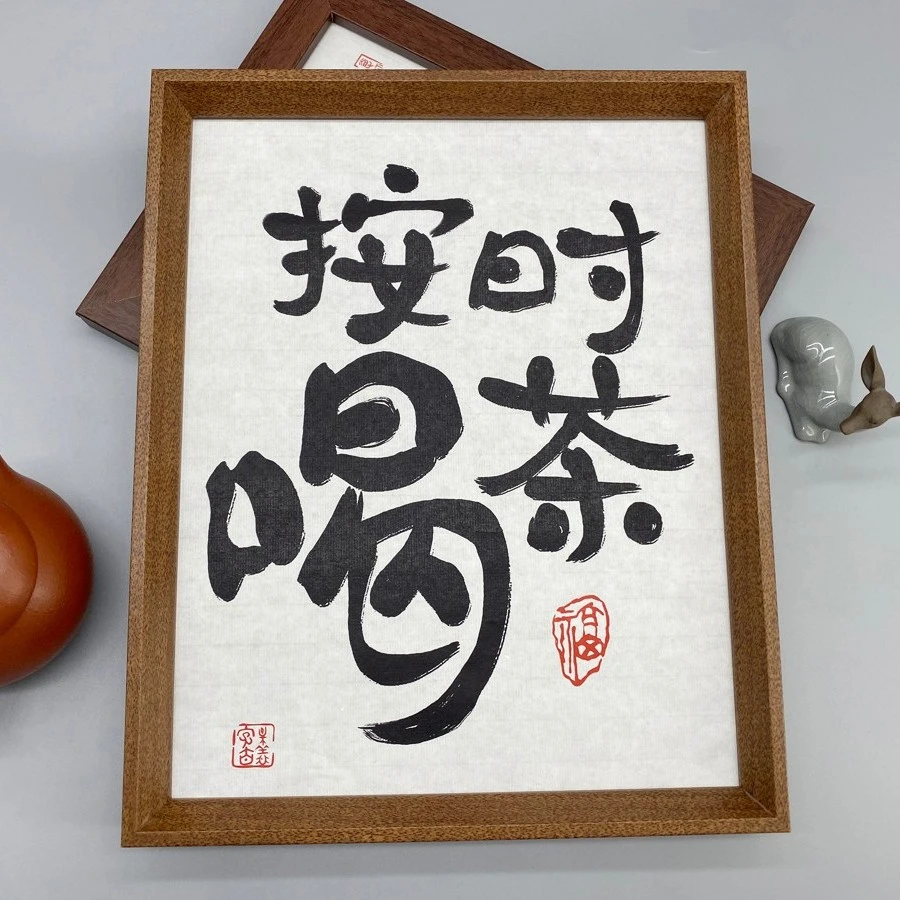 按时
喝茶
福